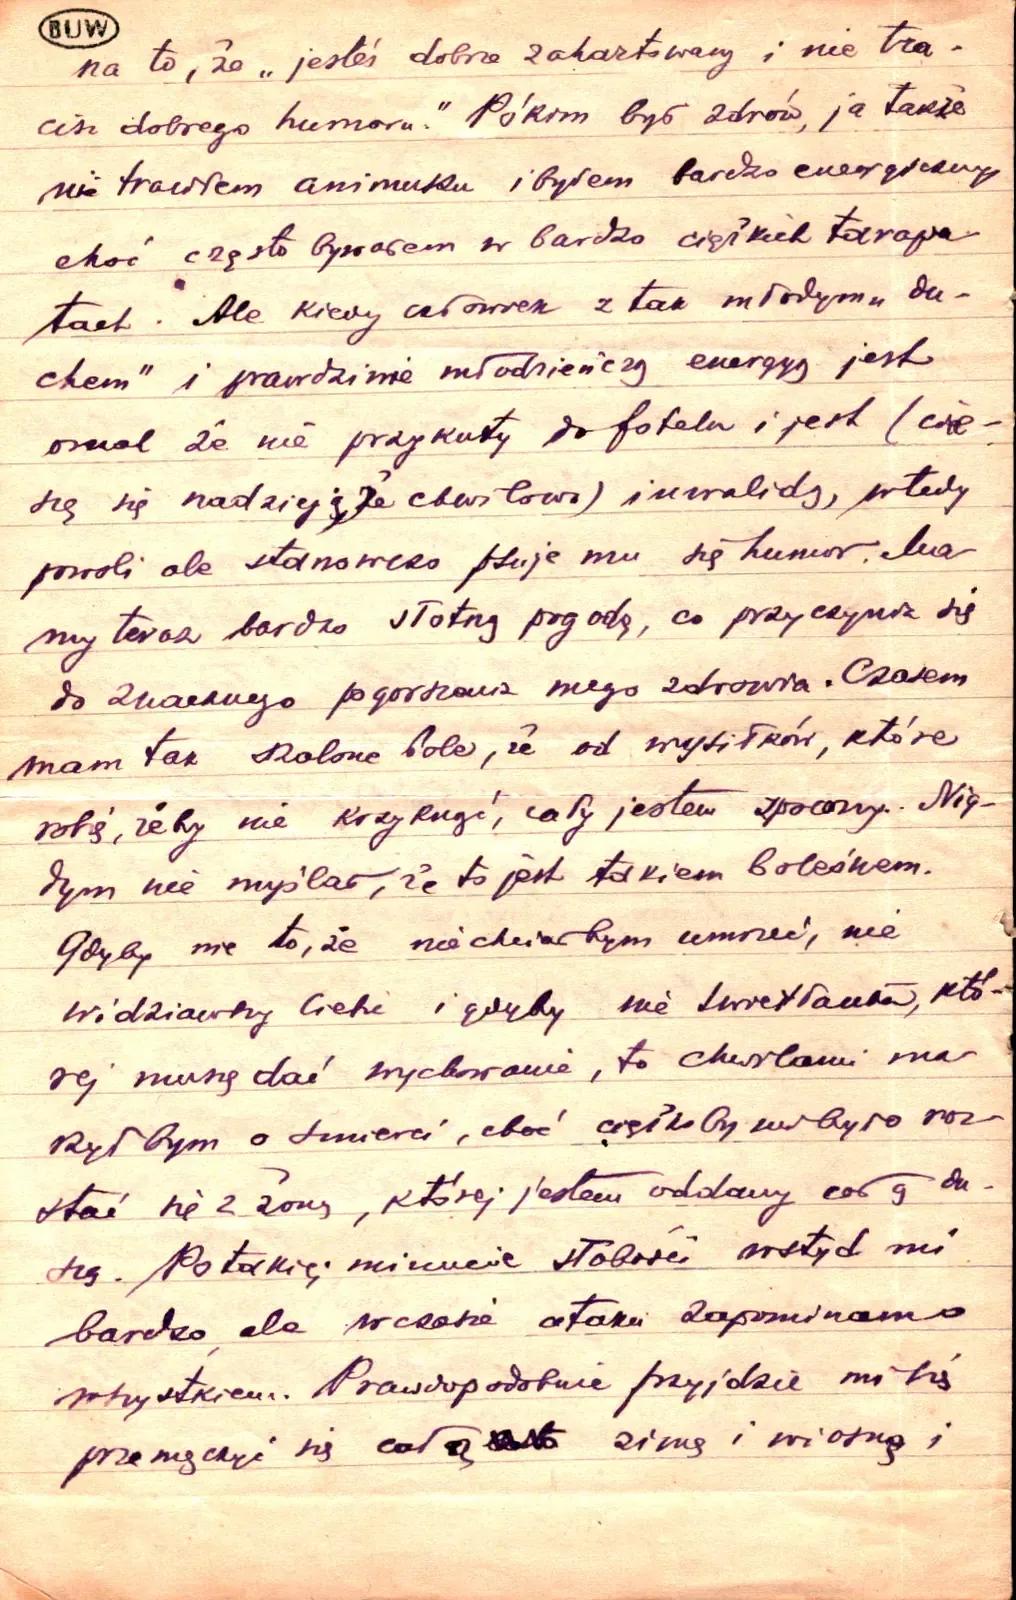 BUW
na to, że „jesteś dobrze zahartowany i nie tra-
cisz dobrego humoru." Pókim był zdrów, ja także
nie traciłem animuszu i byłem bardzo energiczny
choć często bywałem w bardzo ciężkich tarapa-
tach. Ale kiedy człowiek z tak młodym „du-
chem" i prawdziwie młodzieńczą energyą jest
omal że nie przykuty do fotelu i jest (cie-
szę się nadzieją, że chwilowo) inwalidą, wtedy
powoli ale stanowczo psuje mu się humor. Ma-
my teraz bardzo słotną pogodę, co przyczynia się
do znacznego pogorszenia mego zdrowia. Czasem
mam tak szalone bole, że od wysiłków, które
robię, żeby nie krzyknąć, cały jestem spocony. Nig-
dym nie myślał, że to jest takiem boleśnem.
Gdyby nie to, że nie chciałbym umrzeć, nie
widziawszy Ciebie i gdyby nie Swietłanka, któ-
rej muszę dać wychowanie, to chwilami ma-
rzyłbym o śmierci, choć ciężkoby mi było roz-
stać się z żoną, której jestem oddany całą du-
szą. Po takiej minucie słabości wstyd mi
bardzo, ale w czasie ataku zapominam o
wszystkiem. Prawdopodobnie przyjdzie mi się
przemęczyć się całą zimę i wiosnę i